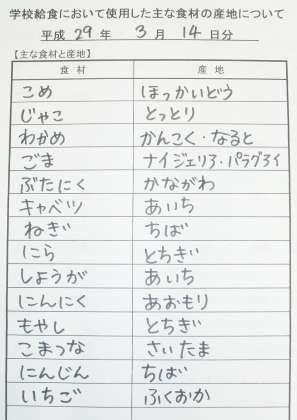 学校給食において使用した主な食材の産地について
平成 29 年 3 月 14 日分
【主な食材と産地】
食材 産地
こめ ほっかいどう
じゃこ とっとり
わかめ かんこく・なると
ごま ナイジェリア・パラグアイ
ぶたにく かながわ
キャベツ あいち
ねぎ ちば
にら とちぎ
しょうが あいち
にんにく あおもり
もやし とちぎ
こまつな さいたま
にんじん ちば
いちご ふくおか